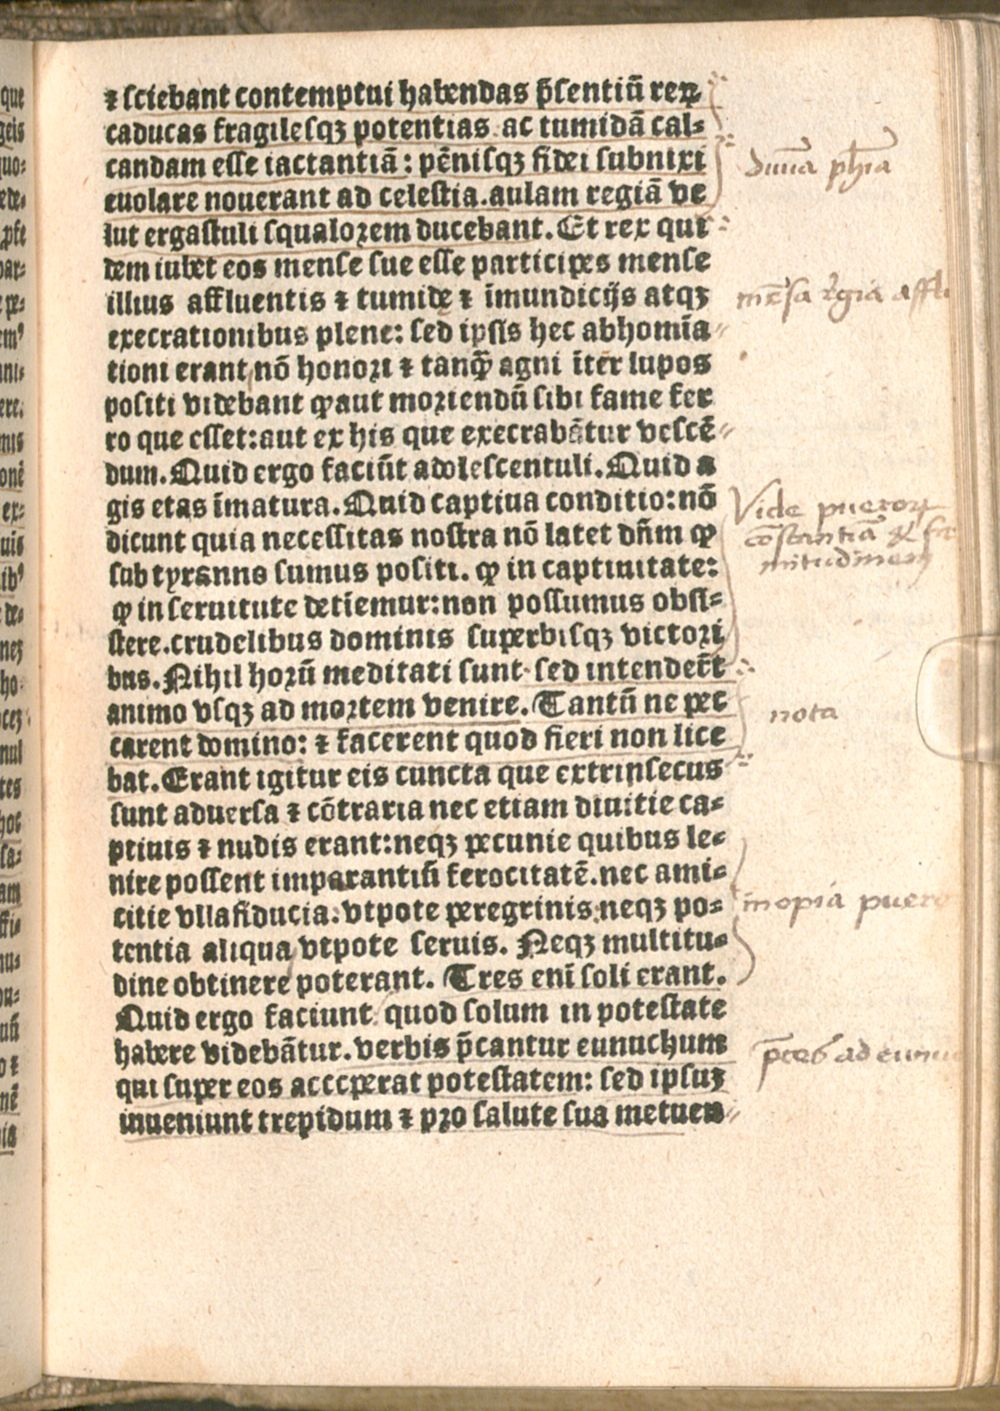 ⁊ sciebant contemptui habendas p̄sentiū reꝝ
caducas fragilesqꝫ potentias ac tumidā cal-
candam esse iactantiā: pēnisqꝫ fidei subnixi
euolare nouerant ad celestia.aulam regiā ve
lut ergastuli squalorem ducebant. Et rex qui
dem iubet eos mense sue esse participes mense
illius affluentis ⁊ tumide ⁊ īmundicijs atqꝫ
execrationibus plene: sed ipsis hec abhomīa
tioni erant nō honori ⁊ tanꝙ̄ agni īter lupos
positi videbant ꝙ aut moriendū sibi fame fer
ro que esset: aut ex his que execrabātur vescē
dum. Quid ergo faciūt adolescentuli. Quid a
gis etas īmatura. Quid captiua conditio: nō
dicunt quia necessitas nostra nō latet dn̄m ꝙ
sub tyranno sumus positi. ꝙ in captiuitate:
ꝙ in seruitute detīemur: non possumus obsi-
stere. crudelibus dominis superbisqꝫ victori
bus. Nihil horū meditati sunt sed intender̄t
animo vsqꝫ ad mortem venire. Tantū ne pec
carent domino: ⁊ facerent quod fieri non lice
bat. Erant igitur eis cuncta que extrinsecus
sunt aduersa ⁊ cōtraria nec etiam diuitie ca-
ptiuis ⁊ nudis erant: neqꝫ pecunie quibus le-
nire possent imparantiū ferocitatē. nec ami-
citie vlla fiducia: vtpote peregrinis: neqꝫ po-
tentia aliqua vtpote seruis. Neqꝫ multitu-
dine obtinere poterant. Tres enī soli erant.
Quid ergo faciunt quod solum in potestate
habere videbātur. verbis p̄cantur eunuchum
qui super eos acceperat potestatem: sed ipsuꝫ
inueniunt trepidum ⁊ pro salute sua metuen-
mēsa rgia affl
Vide pueroꝝ
cōstantiā &
nota
inopia puero
p̄ces ad eunu